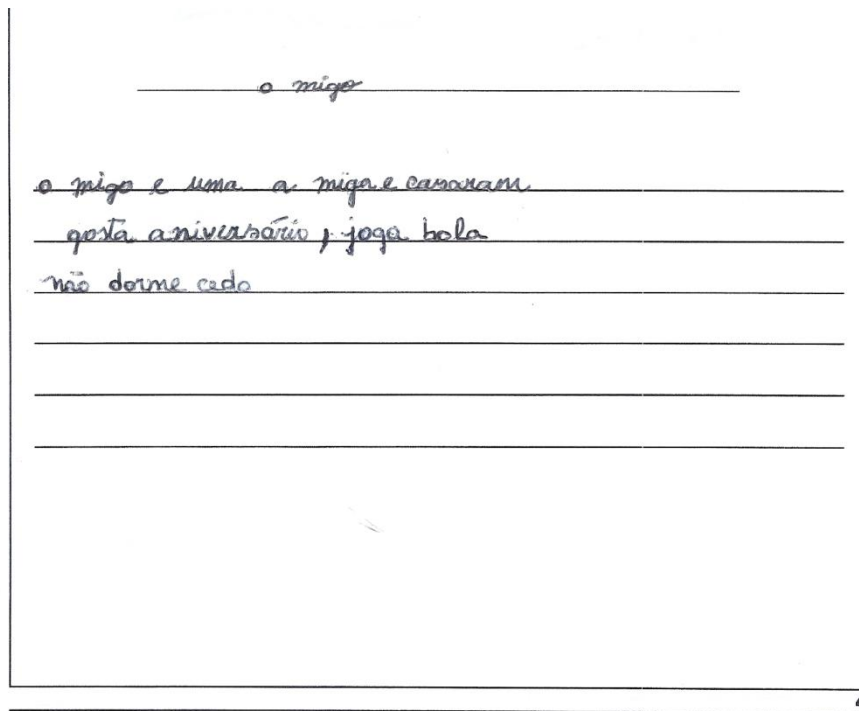 o migo
o migo e uma a miga e casaram
gosta aniversário, joga bola
não dorme cedo